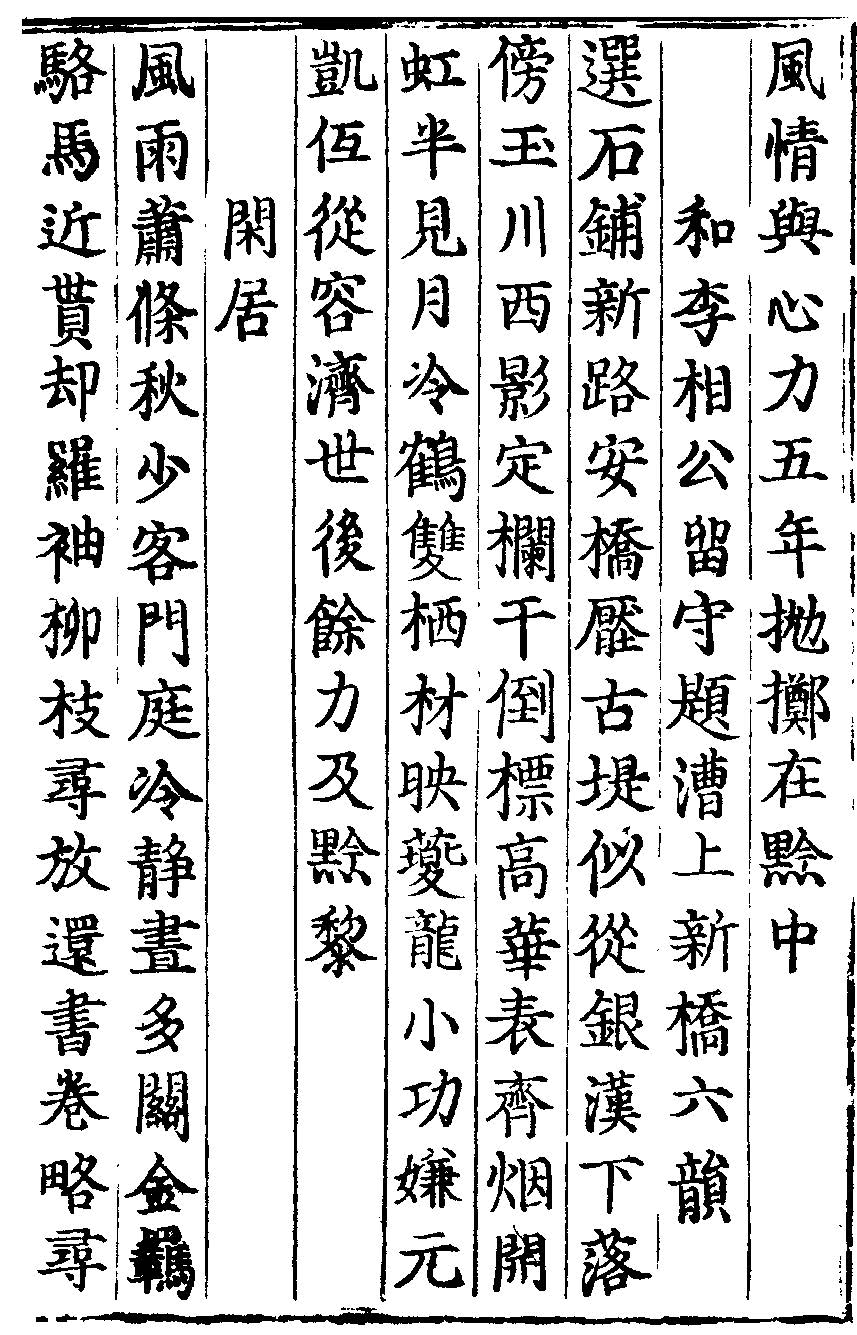 風情與心力五年拋擲在黔中
和李相公留守題漕上新橋六韻
選石鋪新路安橋壓古堤似從銀漢下落
傍玉川西影定欄干倒標高華表齊烟開
虹半見月冷鶴雙栖材映夔龍小功嫌元
凱伍從容濟世後餘力及黔黎
閑居
風雨蕭條秋少客門庭冷静晝多關金羈
駱馬近貰却羅袖柳枝尋放還書卷略尋